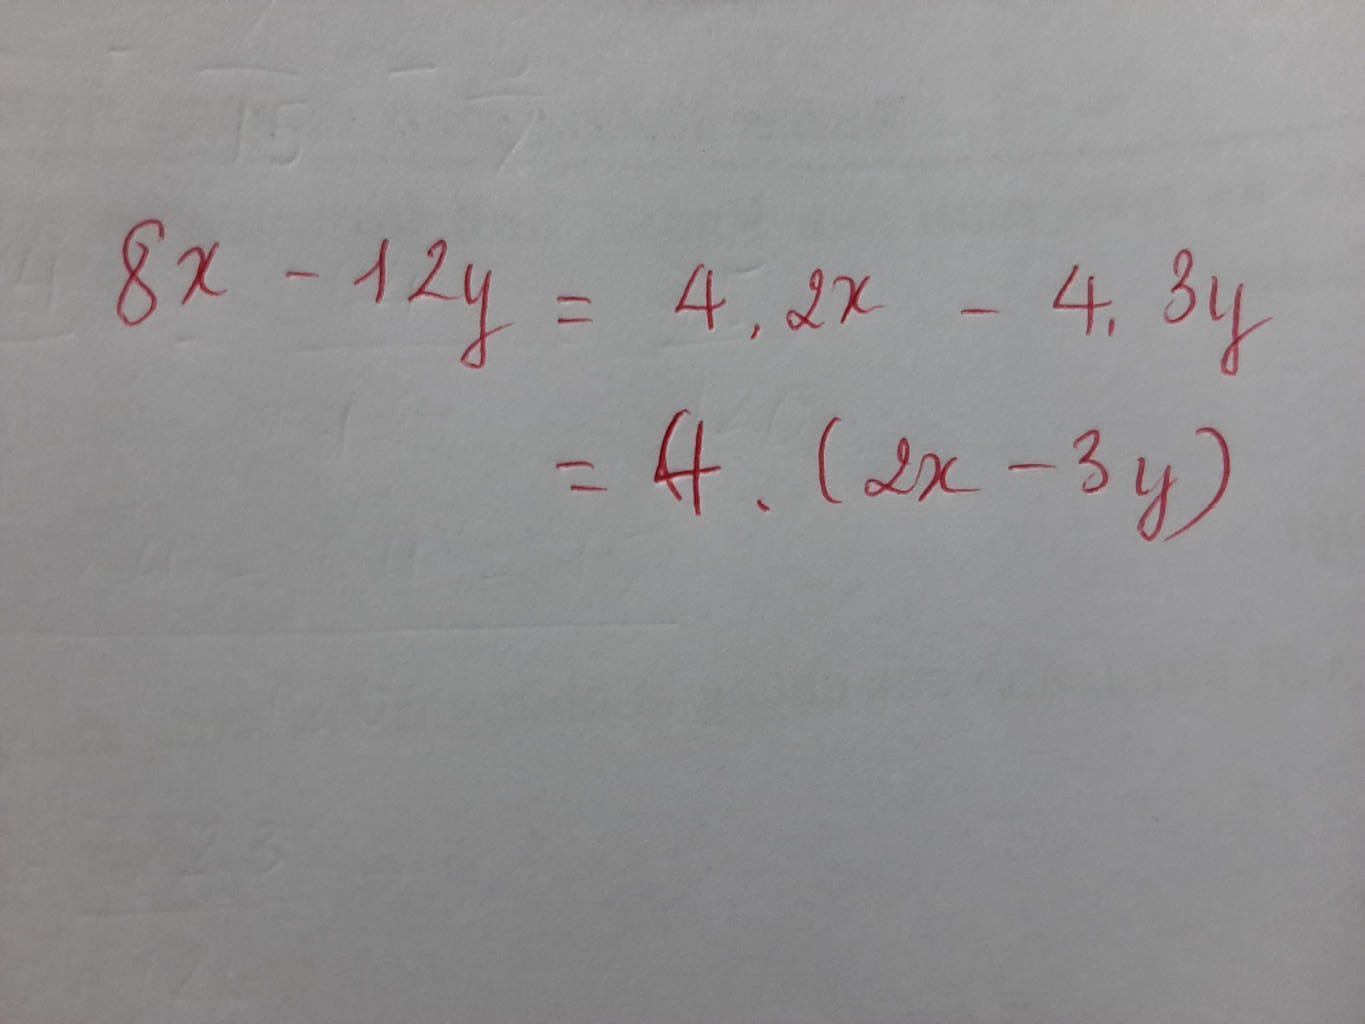 8x - 12y = 4.2x - 4.3y
= 4.(2x - 3y)